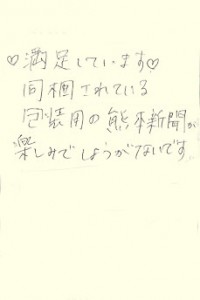 ♡満足しています♡
同梱されている
包装用の熊本新聞が
楽しみでしょうがないです